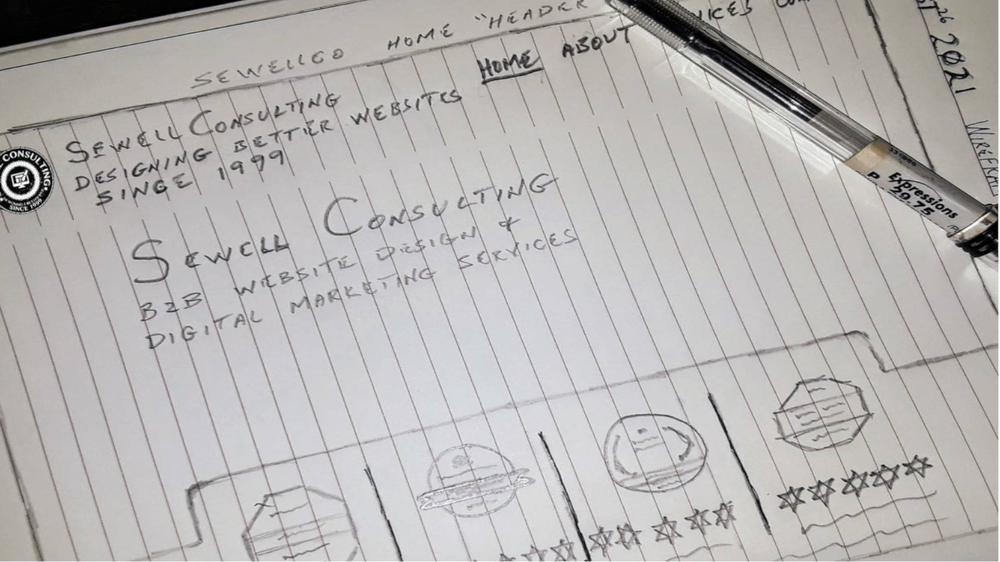 SEWELLCO HOME "HEADER
HOME ABOUT
SEWELL CONSULTING
DESIGNING BETTER WEBSITES
SINCE 1999
CONSULTING
SINCE 1999
SEWELL CONSULTING
B2B WEBSITE DESIGN &
DIGITAL MARKETING SERVICES
2021
Expressions